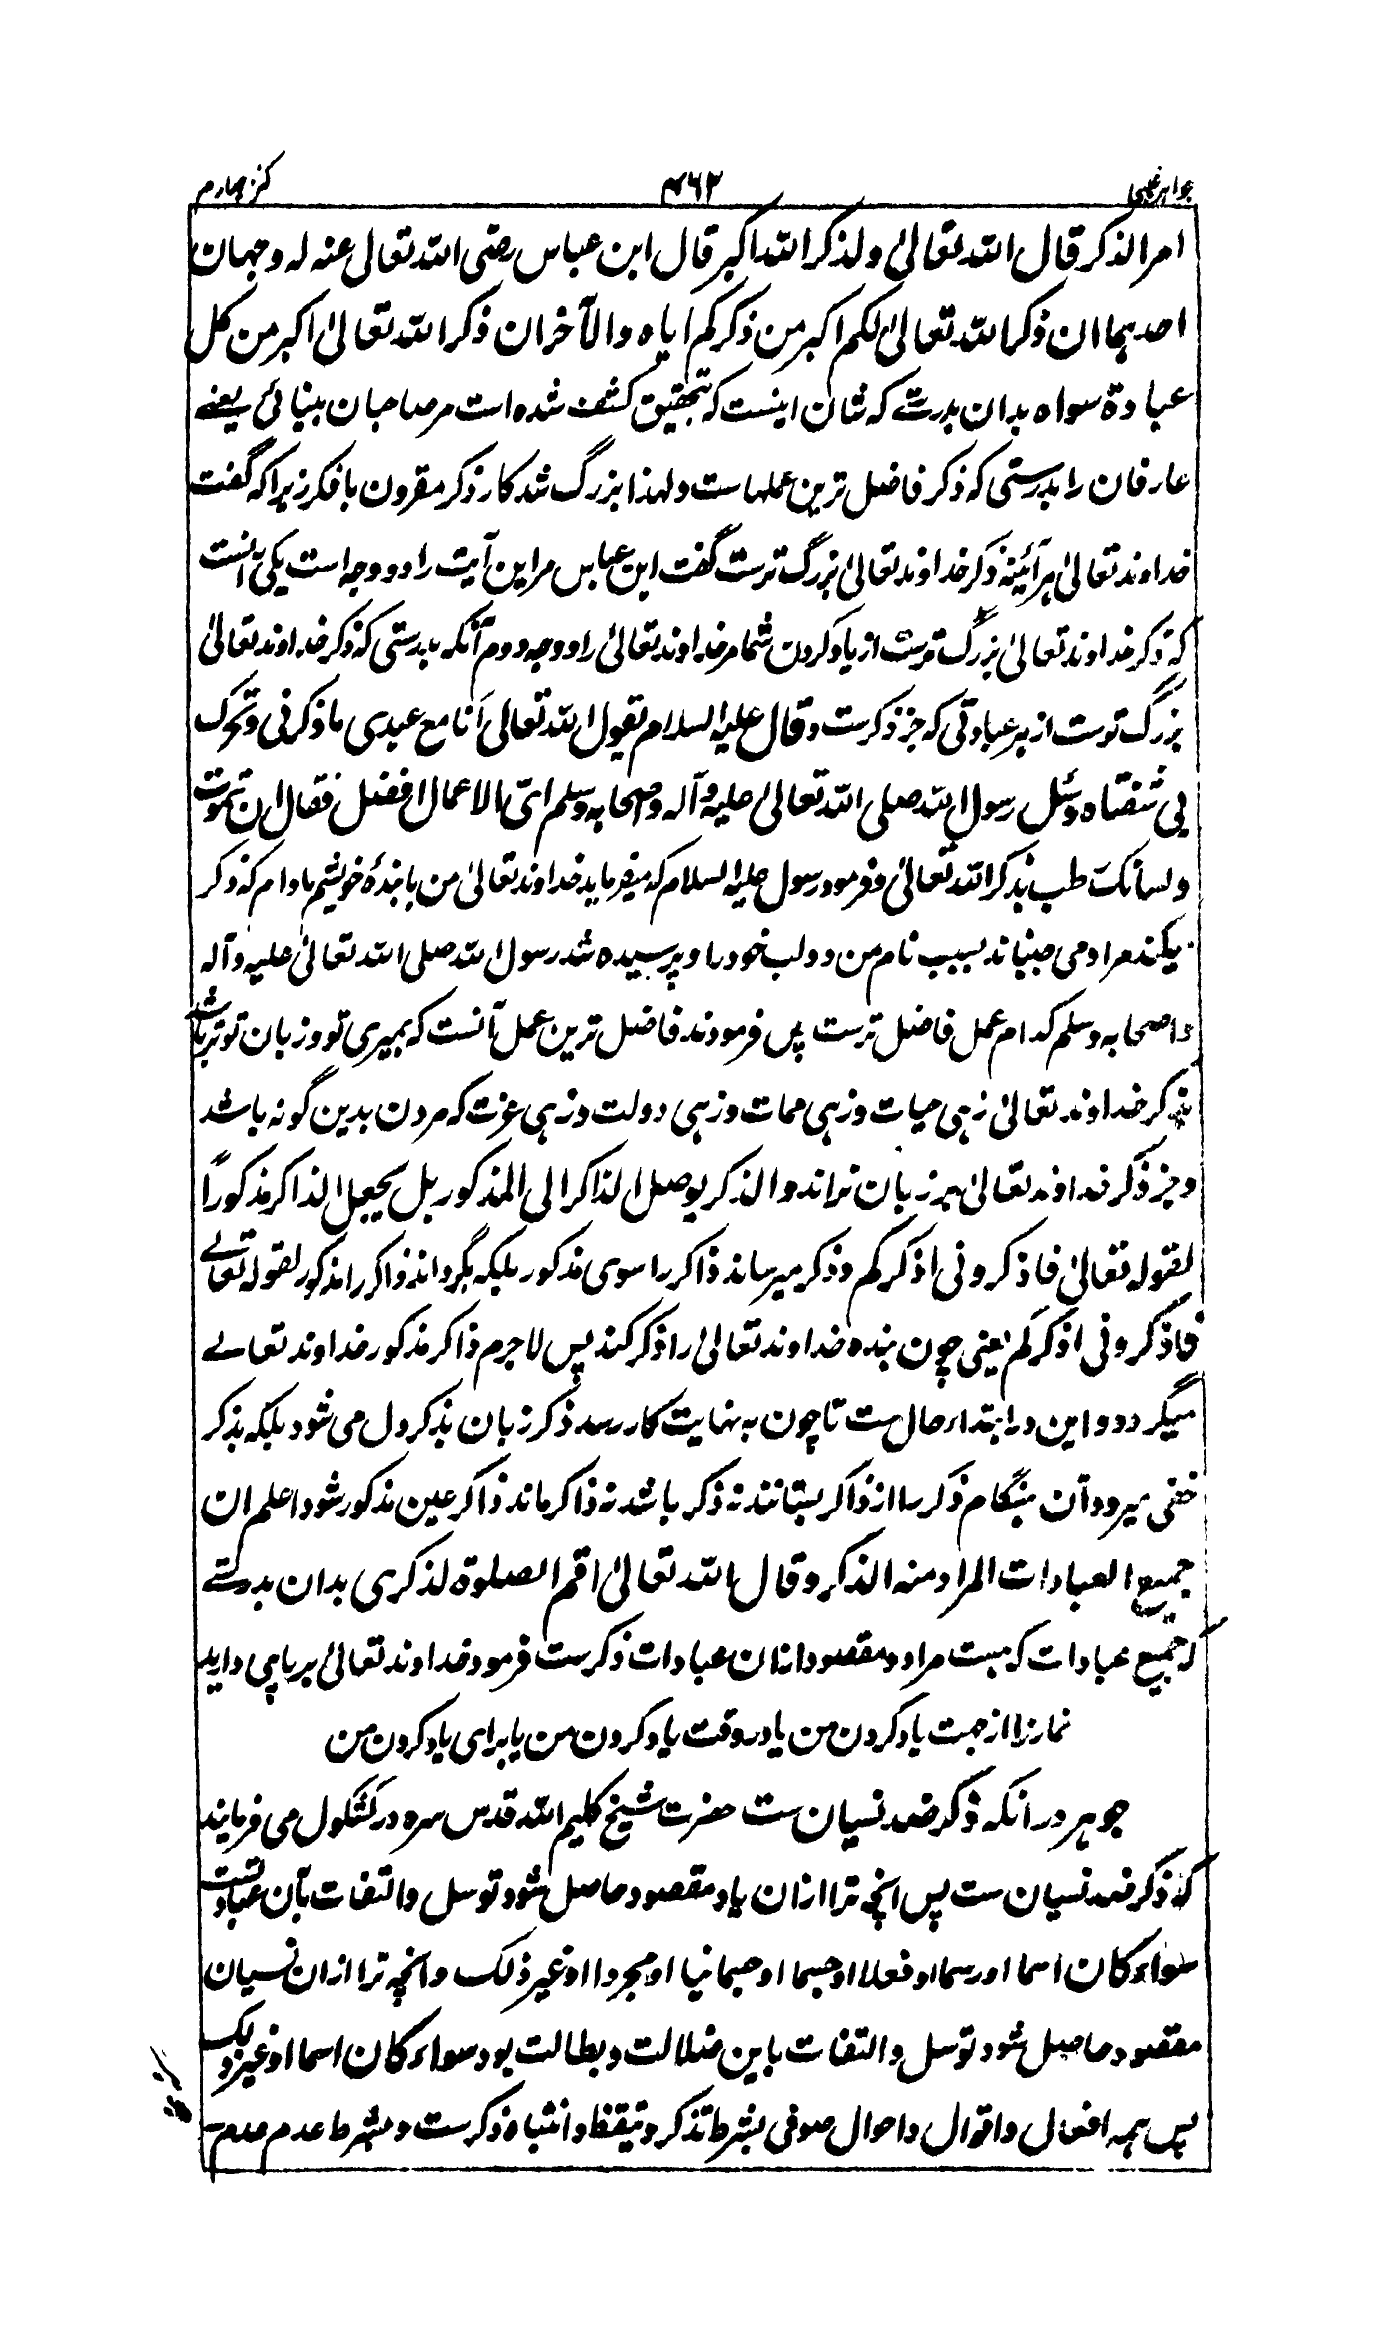 جواهر غیبی
۴۶۲
کنز چهارم
امر الذکر قال الله تعالیٰ ولذکر الله اکبر قال ابن عباس رضی الله تعالی عنه له وجهان
احدیهما ان ذکر الله تعالیٰ لکم اکبر من ذکرکم ایاه والآخر ان ذکر الله تعالیٰ اکبر من کل
عبادة سواه بدان بدرستے که شان اینست که تجقیق کشف شده است مر صاحبان بینائی یعنے
عارفان را بدرستی که ذکر فاضل ترین عملهاست ولهذا بزرگ شد کار ذکر مقرون با فکر زیرا که گفت
خداوند تعالیٰ هر آئینه ذکر خداوند تعالیٰ بزرگ ترست گفت ابن عباس مر این آیت را دو وجه است یکی آنست
که ذکر خداوند تعالیٰ بزرگ ترست از یاد کردن شما مر خداوند تعالیٰ را ووجه دوم آنکه بدرستی که ذکر خداوند تعالیٰ
بزرگ ترست از هر عبادتی که جز ذکرست وقال علیه السلام یقول الله تعالی اَنا مع عبدی ما ذکرنی وتحرک
بی شفتاه وسئل رسول الله صلی الله تعالیٰ علیه وآله وصحابه وسلم ایّ الاعمال افضل فقال ان تموت
ولسانک طب بذکر الله تعالیٰ وفرمود رسول علیه السلام که میفرماید خداوند تعالیٰ من با بندهٔ خویشم مادام که ذکر
میکند مرا و می جنباند بسبب نام من دو لب خود را و پرسیده شد رسول الله صلی الله تعالیٰ علیه وآله
واصحابه وسلم کدام عمل فاضل ترست پس فرمودند فاضل ترین عمل آنست که بمیری تو وزبان تو تر باشد
بذکر خداوند تعالیٰ زهی حیات وزهی ممات وزهی دولت وزهی عزت که مردن بدین گونه باشد
وجز ذکر خداوند تعالیٰ بر زبان نراند والذکر یوصل الذاکر الی المذکور بل یجعل الذاکر مذکوراً
لقوله تعالیٰ فاذکرونی اذکرکم وذکر میرساند ذاکر را سوی مذکور بلکه بگرداند ذاکر را مذکور لقوله تعالے
فاذکرونی اذکرکم یعنی چون بنده خداوند تعالیٰ را ذکر کند پس لاجرم ذاکر مذکور خداوند تعالے
میگردد واین در ابتداء حال ست تا چون به نهایت کار رسد ذکر زبان بذکر دل می شود بلکه بذکر
خفی میرود آن هنگام ذکر را از ذاکر بستانند نه ذکر باشد نه ذاکر ماند ذاکر عین مذکور شود اعلم ان
جمیع العبادات المراد منه الذکر وقال الله تعالیٰ اقم الصلوة لذکری بدان بدرستے
که جمیع عبادات که هست مراد ومقصود ازان عبادات ذکرست فرمود خداوند تعالیٰ برپای دارید
نماز را از جهت یاد کردن من یا در وقت یاد کردن من یا برای یاد کردن من
جوهر در آنکه ذکر ضد نسیان ست حضرت شیخ کلیم الله قدس سره در کشکول می فرمایند
که ذکر ضد نسیان ست پس انچه ترا ازان یاد مقصود حاصل شود توسل والتفات بآن عبادتست
سواء کان اسما او رسما او فعلا او جسما او جسمانیا او مجردا او غیر ذلک وانچه ترا ازان نسیان
مقصود حاصل شود توسل والتفات باین ضلالت وبطالت بود سواء کان اسما او غیر ذلک
پس همه افعال واقوال واحوال صوفی بشرط تذکر وتیقظ وانتباه ذکرست وبشرط عدم